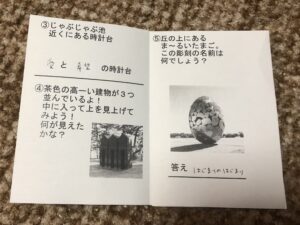 ③じゃぶじゃぶ池
近くにある時計台
愛と希望の時計台
④茶色の高ーい建物が３つ
並んでいるよ！
中に入って上を見上げて
みよう！
何が見えた
かな？
⑤丘の上にある
ま～るいたまご。
この彫刻の名前は
何でしょう？
答え はじまりのはじまり